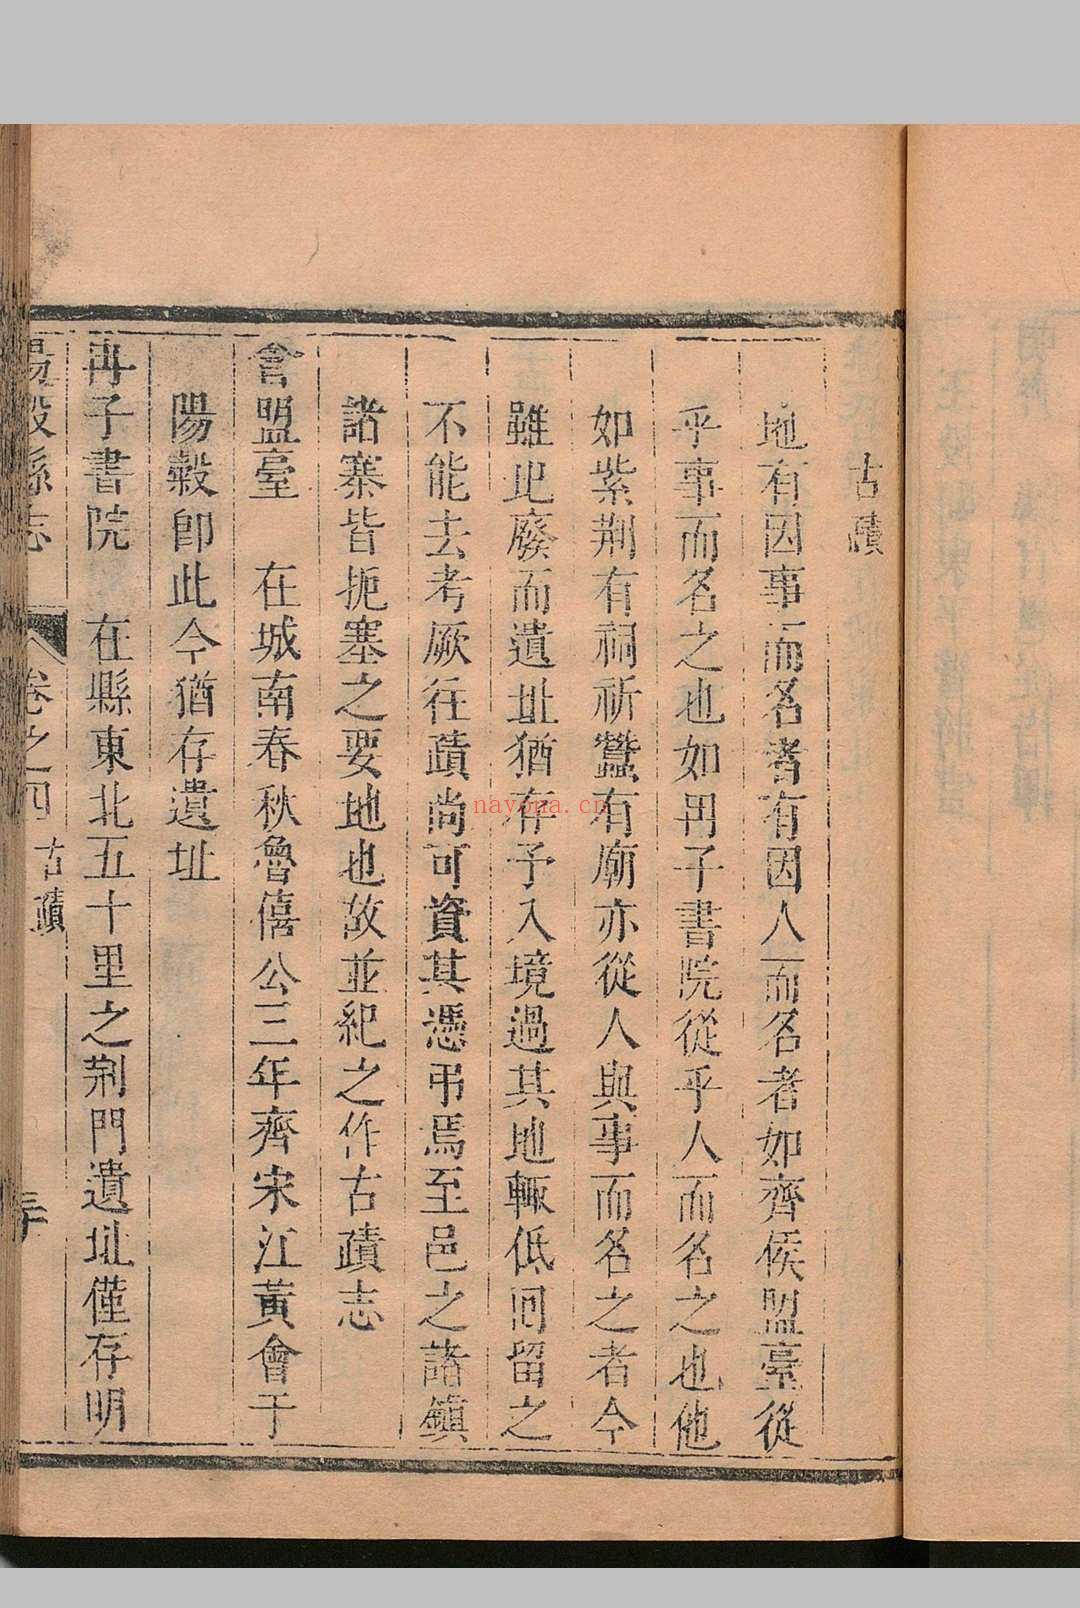 古蹟
地有因事而名者有因人而名者如齊侯盟臺從
乎事而名之也如冉子書院從乎人而名之也他
如紫荆有祠祈蠶有廟亦從人與事而名之者今
雖圮廢而遺址猶存予入境過其地輒低回留之
不能去考厥往蹟尚可資其憑弔焉至邑之諸鎮
諸寨皆扼塞之要地也故並紀之作古蹟志
會盟臺 在城南春秋魯僖公三年齊宋江黃會于
陽穀即此今猶存遺址
冉子書院 在縣東北五十里之荆門遺址僅存明
陽穀縣志 卷之四 古蹟 三十
nayona.cn